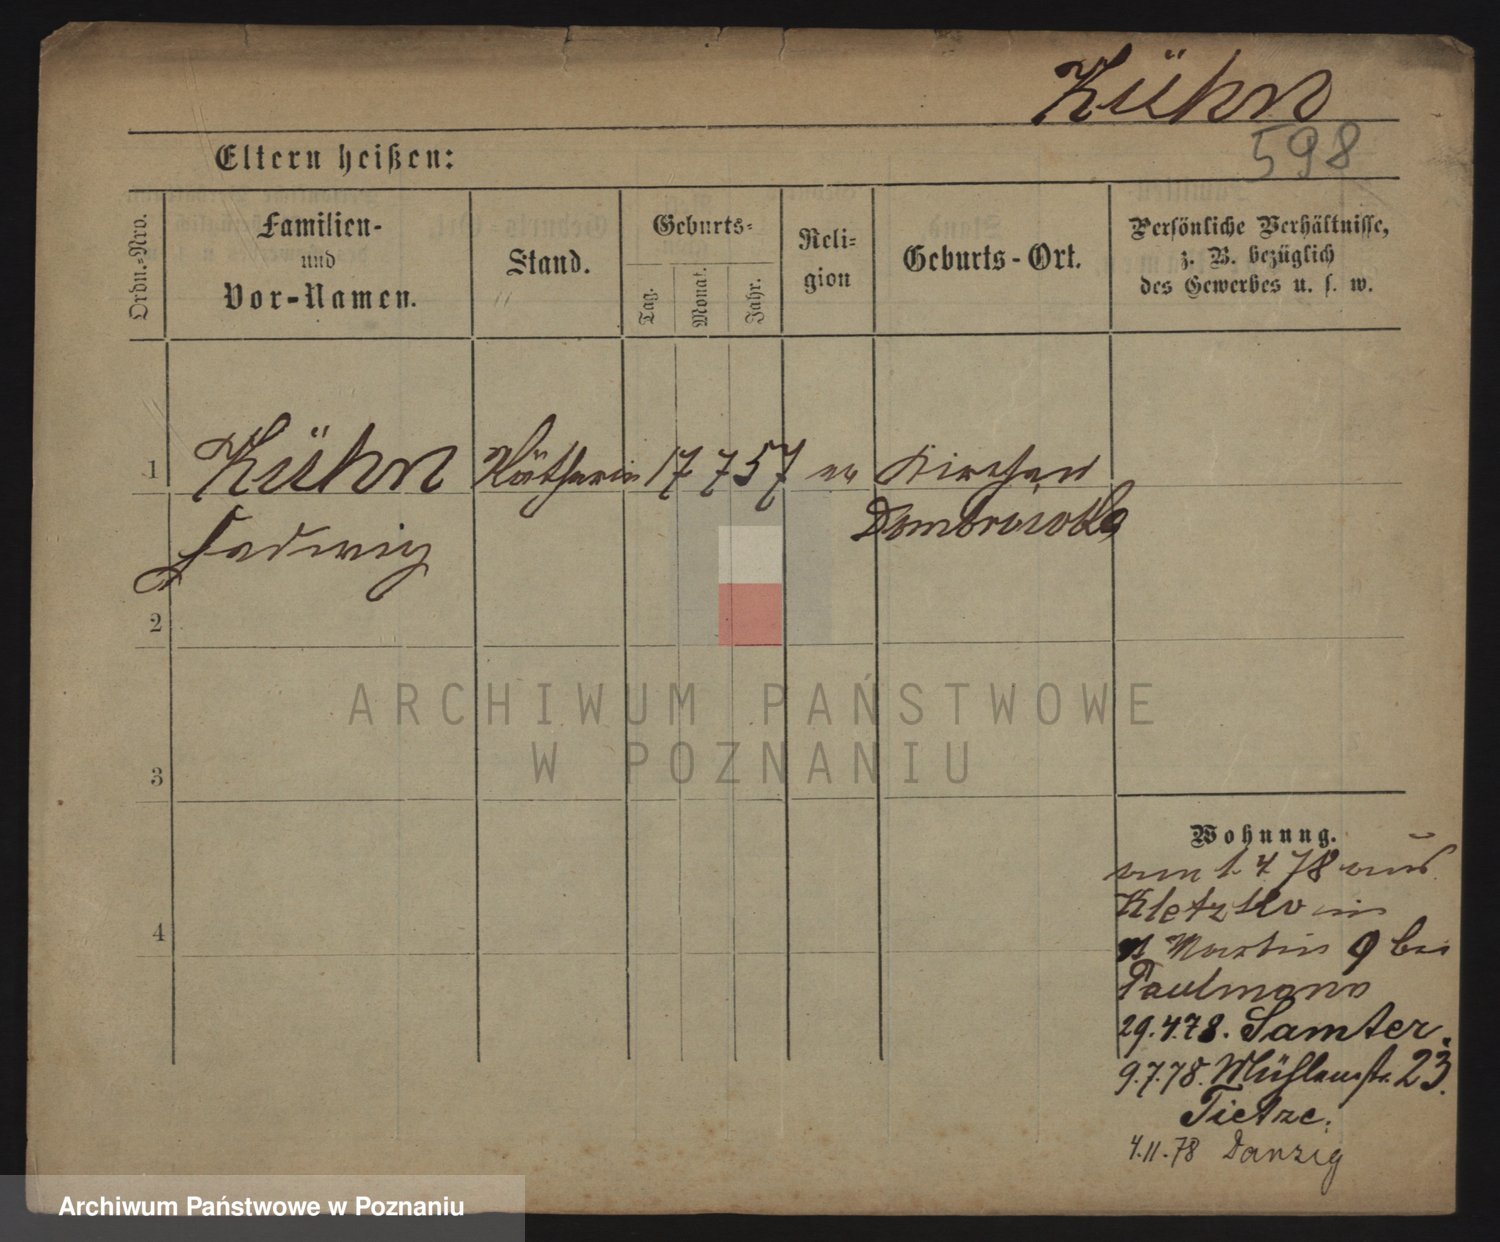 Kühn
598
Eltern heißen:
Ordn.-Nro.
Familien-
und
Vor-Namen.
Stand.
Geburts-
Tag.
Monat.
Jahr.
Reli-
gion
Geburts-Ort.
Persönliche Verhältnisse,
z. B. bezüglich
des Gewerbes u. s. w.
1 Kühn 17 7 57 ev Kirchen
Hedwig Dombrowka
2
3
4
ARCHIWUM PAŃSTWOWE
W POZNANIU
Wohnung.
1. 4 78 aus
Kletzko in
St Martin 9 bei
Paulmann
29.4.78. Samter.
9.7.78. Mühlenstr. 23.
Tietze.
4.11.78 Danzig
Archiwum Państwowe w Poznaniu